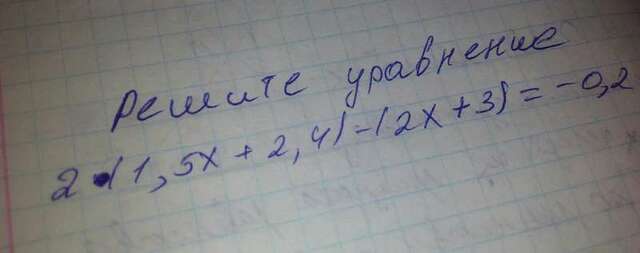 Решите уравнение
2•(1,5x+2,4)-(2x+3)=-0,2